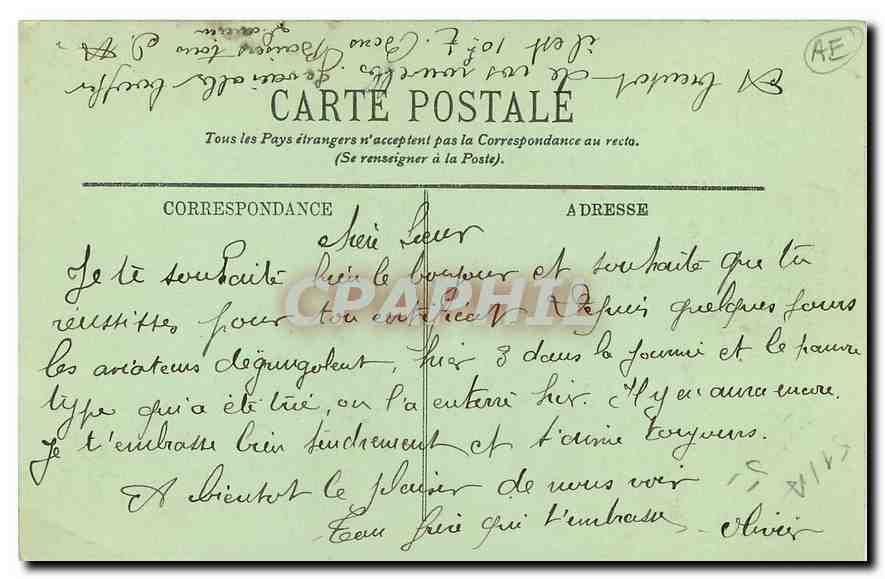 AE
A bientot de vos nouvelles
il est 10h Bons Baisers tous
CARTE POSTALE
Tous les Pays étrangers n'acceptent pas la Correspondance au recto.
(Se renseigner à la Poste).
CORRESPONDANCE
ADRESSE
chère Soeur
Je te souhaite bien le bonjour et souhaite que tu
réussisses pour ton certificat depuis quelques jours
les aviateurs dégringolent, hier 3 dans la journé et le pauvre
type qui a été tué, on l'a enterré hier. Il y en aura encore.
Je t'embrasse bien tendrement et t'aime toujours.
A bientot le plaisir de nous voir
Ton frère qui t'embrasse Olivier
CPAPHIL